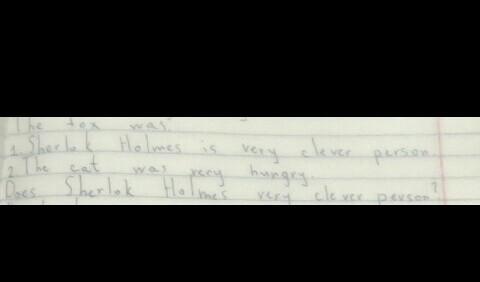 The fox was.
1. Sherlok Holmes is very clever person.
2. The cat was very hungry.
Does Sherlok Holmes very clever person?